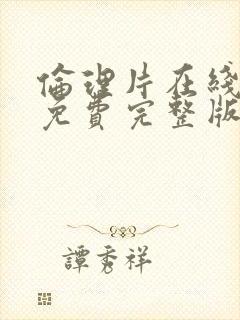 倫理片在綫
免費完整版
譚秀祥